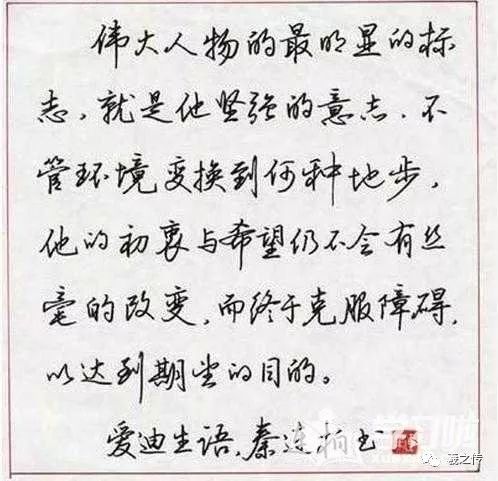 伟大人物的最明显的标
志,就是他坚强的意志,不
管环境变换到何种地步,
他的初衷与希望仍不会有丝
毫的改变,而终于克服障碍,
以达到期望的目的。
爱迪生语,秦连柏书
学习啦
羲之传